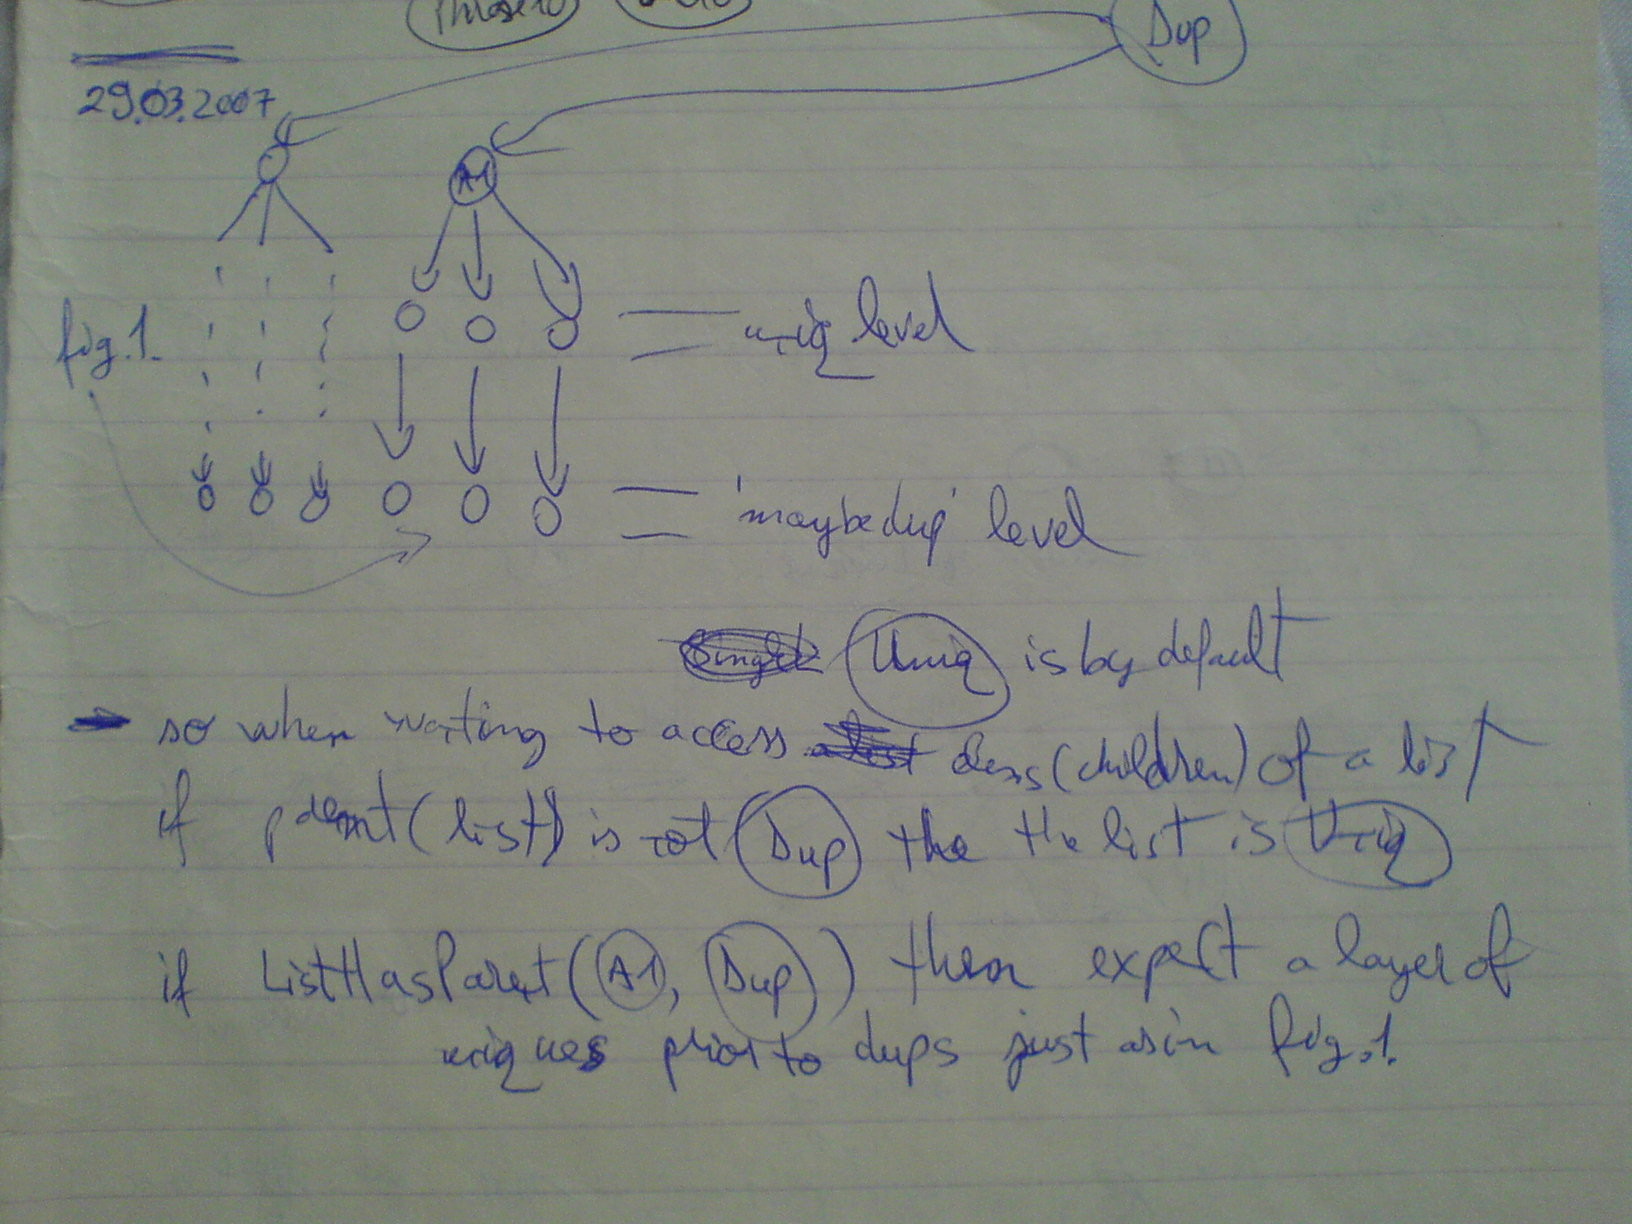 Dup
29.03.2007
A1
fig.1.
uniq level
'maybe dup' level
Uniq is by default
so when wanting to access elems (children) of a list
if parent(list) is not Dup the the list is Uniq
if ListHasParent(A1, Dup) then expect a layer of
uniques prior to dups just as in fig.1.